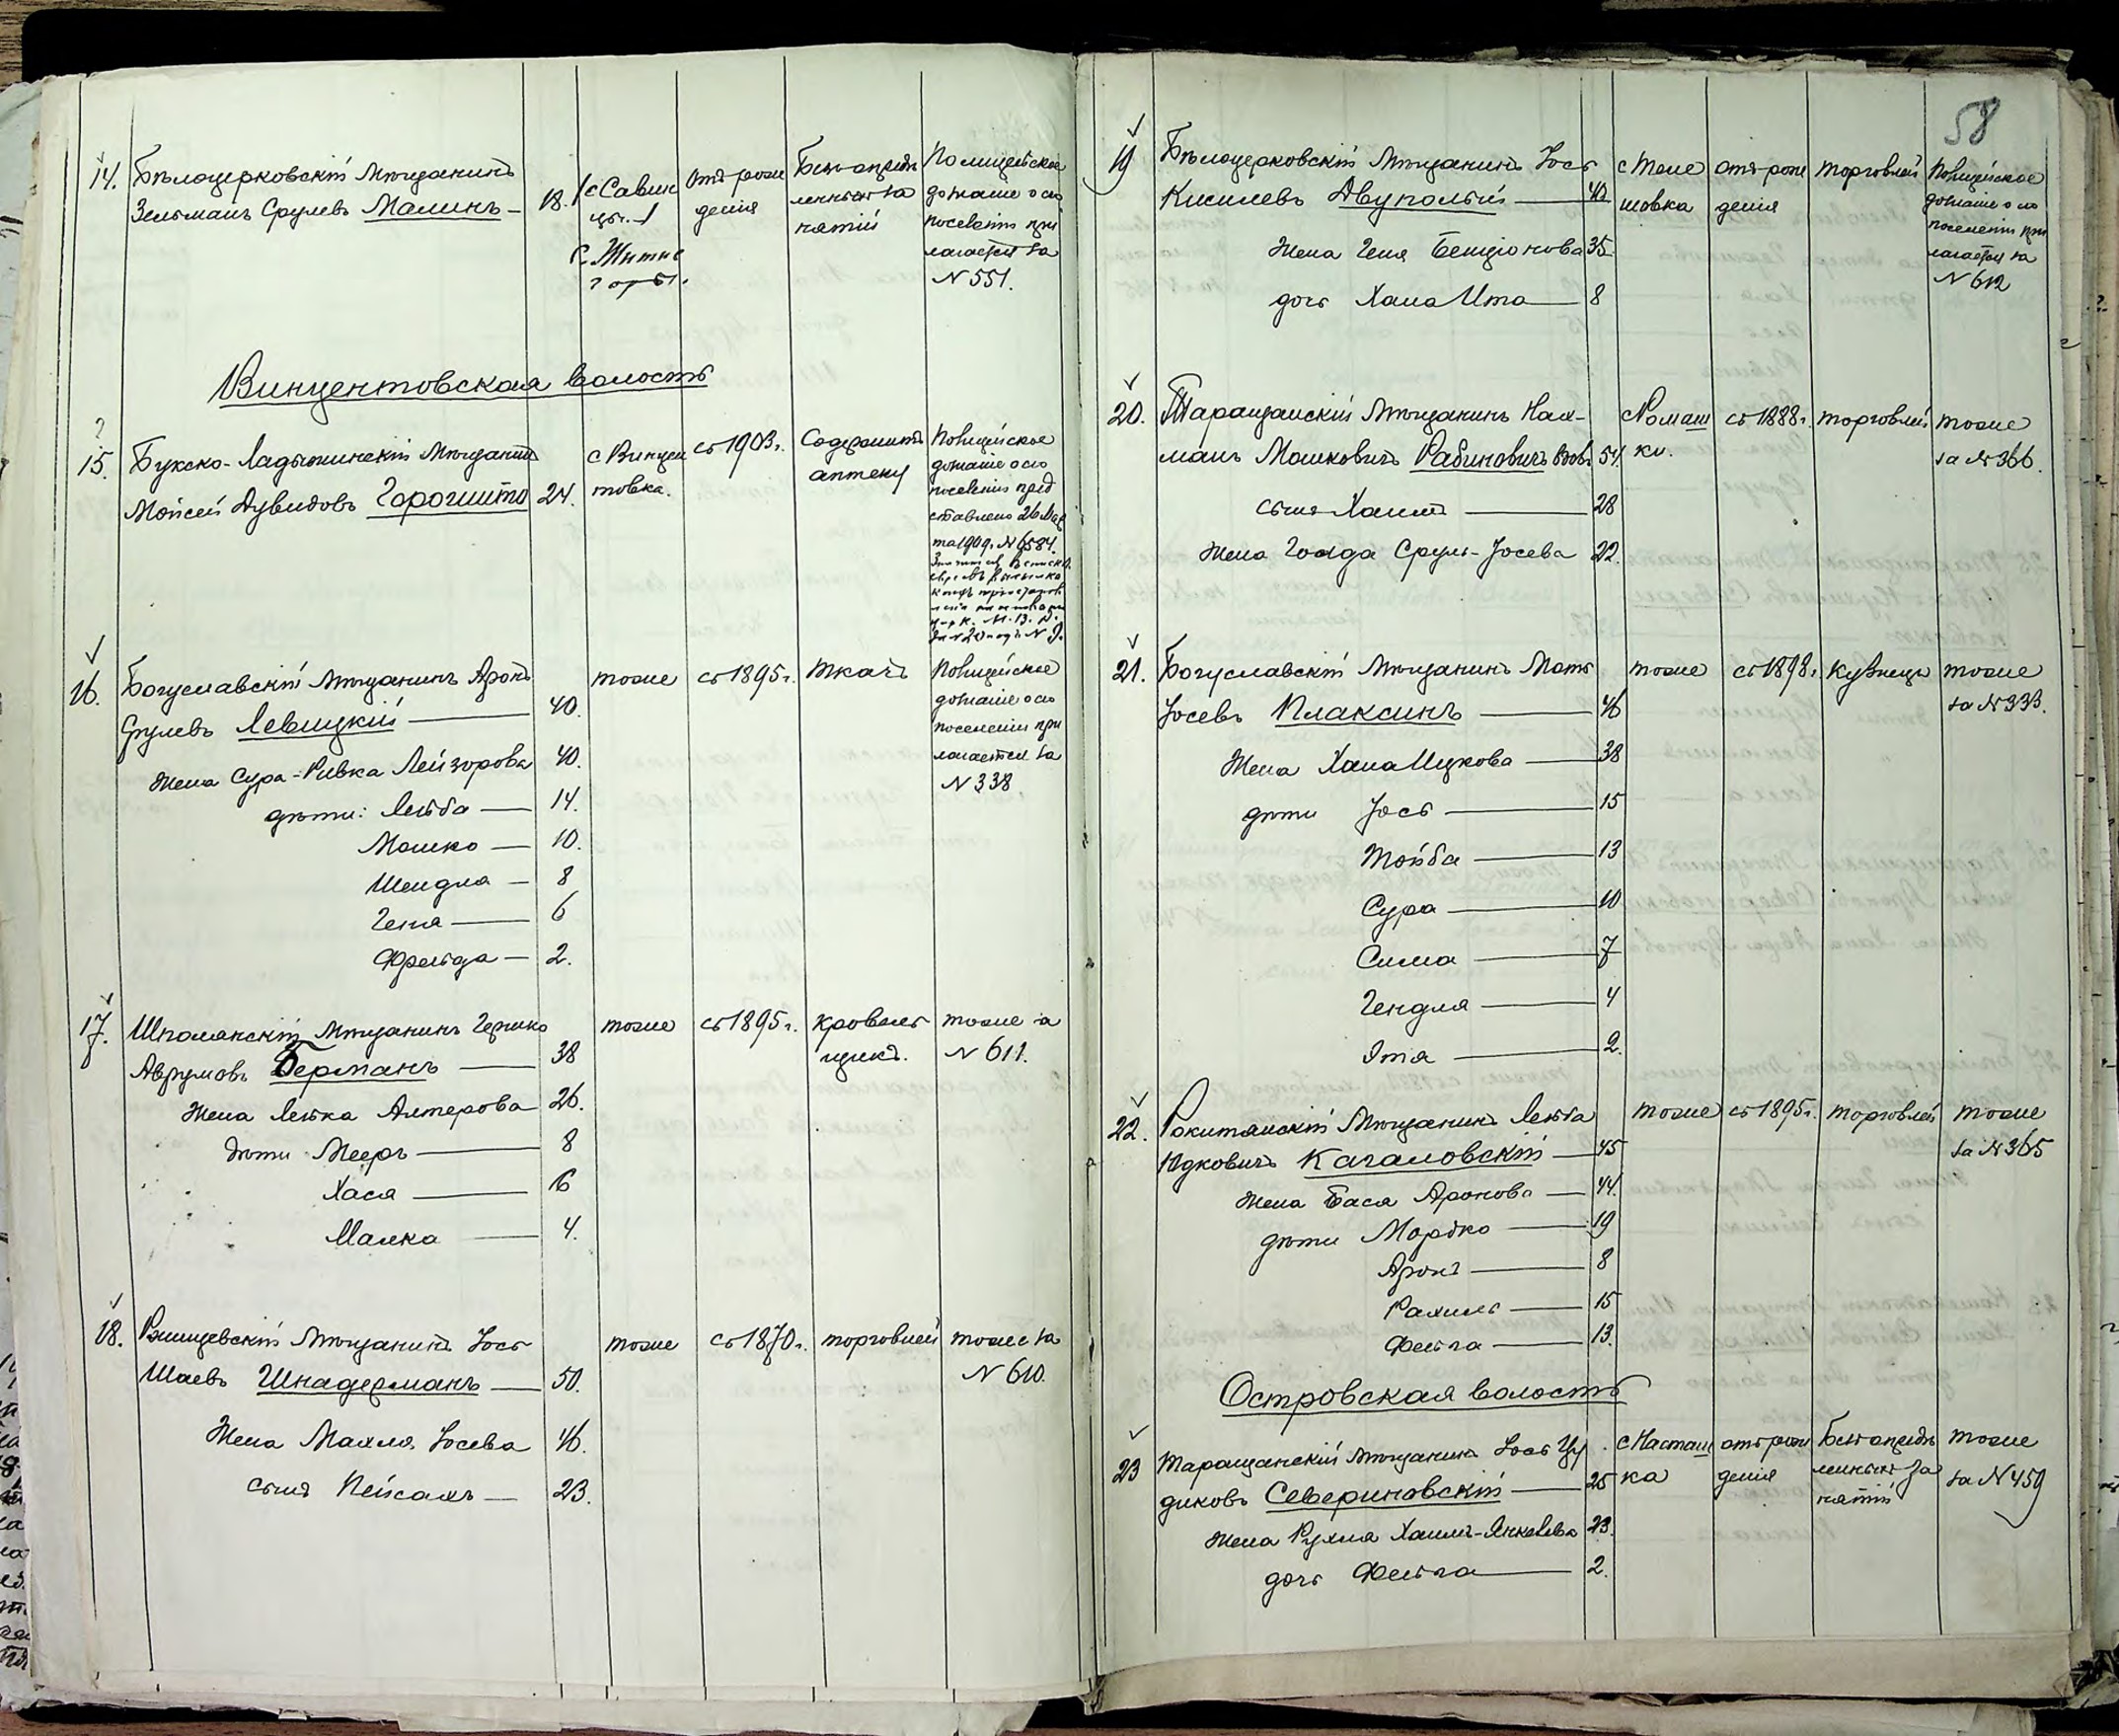 14. Бѣлоцерковскій Мѣщанинъ
Зельманъ Срулевъ Малинъ — 18.
(с Савин
цы.)
с. Житне
горы.
Отъ рож
денія
Безъ опредѣ
ленныхъ за
нятій
Полицейское
дознаніе о его
поселеніи при
лагается за
N 551.
Винцентовская волость
?
15. Букско-Ладыжинскій Мѣщанинъ
Мойсей Дувидовъ Горошито 24.
с Винцен
товка.
съ 1903 г.
Содержитъ
аптеку
Полицейское
дознаніе о его
поселеніи пред
ставлено 26 Мар
та 1909 г. N 6584.
16. Богуславскій Мѣщанинъ Аронъ
Срулевъ Левицкій — 40.
тоже
съ 1895 г.
ткачъ
Полицейское
дознаніе о его
поселеніи при
лагается за
N 338
Жена Сура-Ривка Лейзорова 40.
дѣти: Лейба — 14.
Мошко — 10.
Шендля — 8
Геня — 6
Фрейда — 2.
17. Шполянскій Мѣщанинъ Гершко
Аврумовъ Берманъ — 38
тоже
съ 1895 г.
кровель
щикъ.
тоже за
N 611.
Жена Лейка Алтерова 26.
Дѣти Мееръ — 8
Хася — 6
Малка — 4.
18. Ржищевскій Мѣщанинъ Іось
Шаевъ Шнадерманъ — 50.
тоже
съ 1870 г.
торговлей
тоже за
N 610.
Жена Махля Іосева 46.
сынъ Пейсахъ — 23.
58
19 Бѣлоцерковскій Мѣщанинъ Іось
Кисилевъ Двуполый — 40
с Теле
шовка
отъ рож
денія
торговлей
Полицейское
дознаніе о его
поселеніи при
лагается за
N 612
Жена Геня Бенціонова 35
дочь Хана Ита — 8
20. Таращанскій Мѣщанинъ Нах-
манъ Мошковичъ Рабиновичъ Вдов. 54.
с Ромаш
ки.
съ 1888 г.
торговлей
тоже
за N 366.
сынъ Хаимъ — 28
Жена Голда Сруль-Іосева 22.
21. Богуславскій Мѣщанинъ Мот
Іосевъ Плаксинъ — 46
тоже
съ 1898 г.
кузнецъ
тоже
за N 333.
Жена Хана Ицкова — 38
дѣти Іось — 15
Тойба — 13
Сура — 10
Сима — 7
Гендля — 4
Этя — 2.
22. Рокитянскій Мѣщанинъ Лейба
Юдковичъ Кагаловскій — 45
тоже
съ 1895 г.
торговлей
тоже
за N 365
Жена Бася Аронова — 44.
дѣти Мордко — 19
Аронъ — 8
Рахиль — 15
Фейга — 13.
Островская волость
23 Таращанскій Мѣщанинъ Іось Цу
диковъ Севериновскій — 25
с Насташ
ка
отъ рож
денія
Безъ опредѣ
ленныхъ за
нятій
тоже
за N 459
Жена Рухля Хаимъ-Янкелева 23.
дочь Фейга — 2.